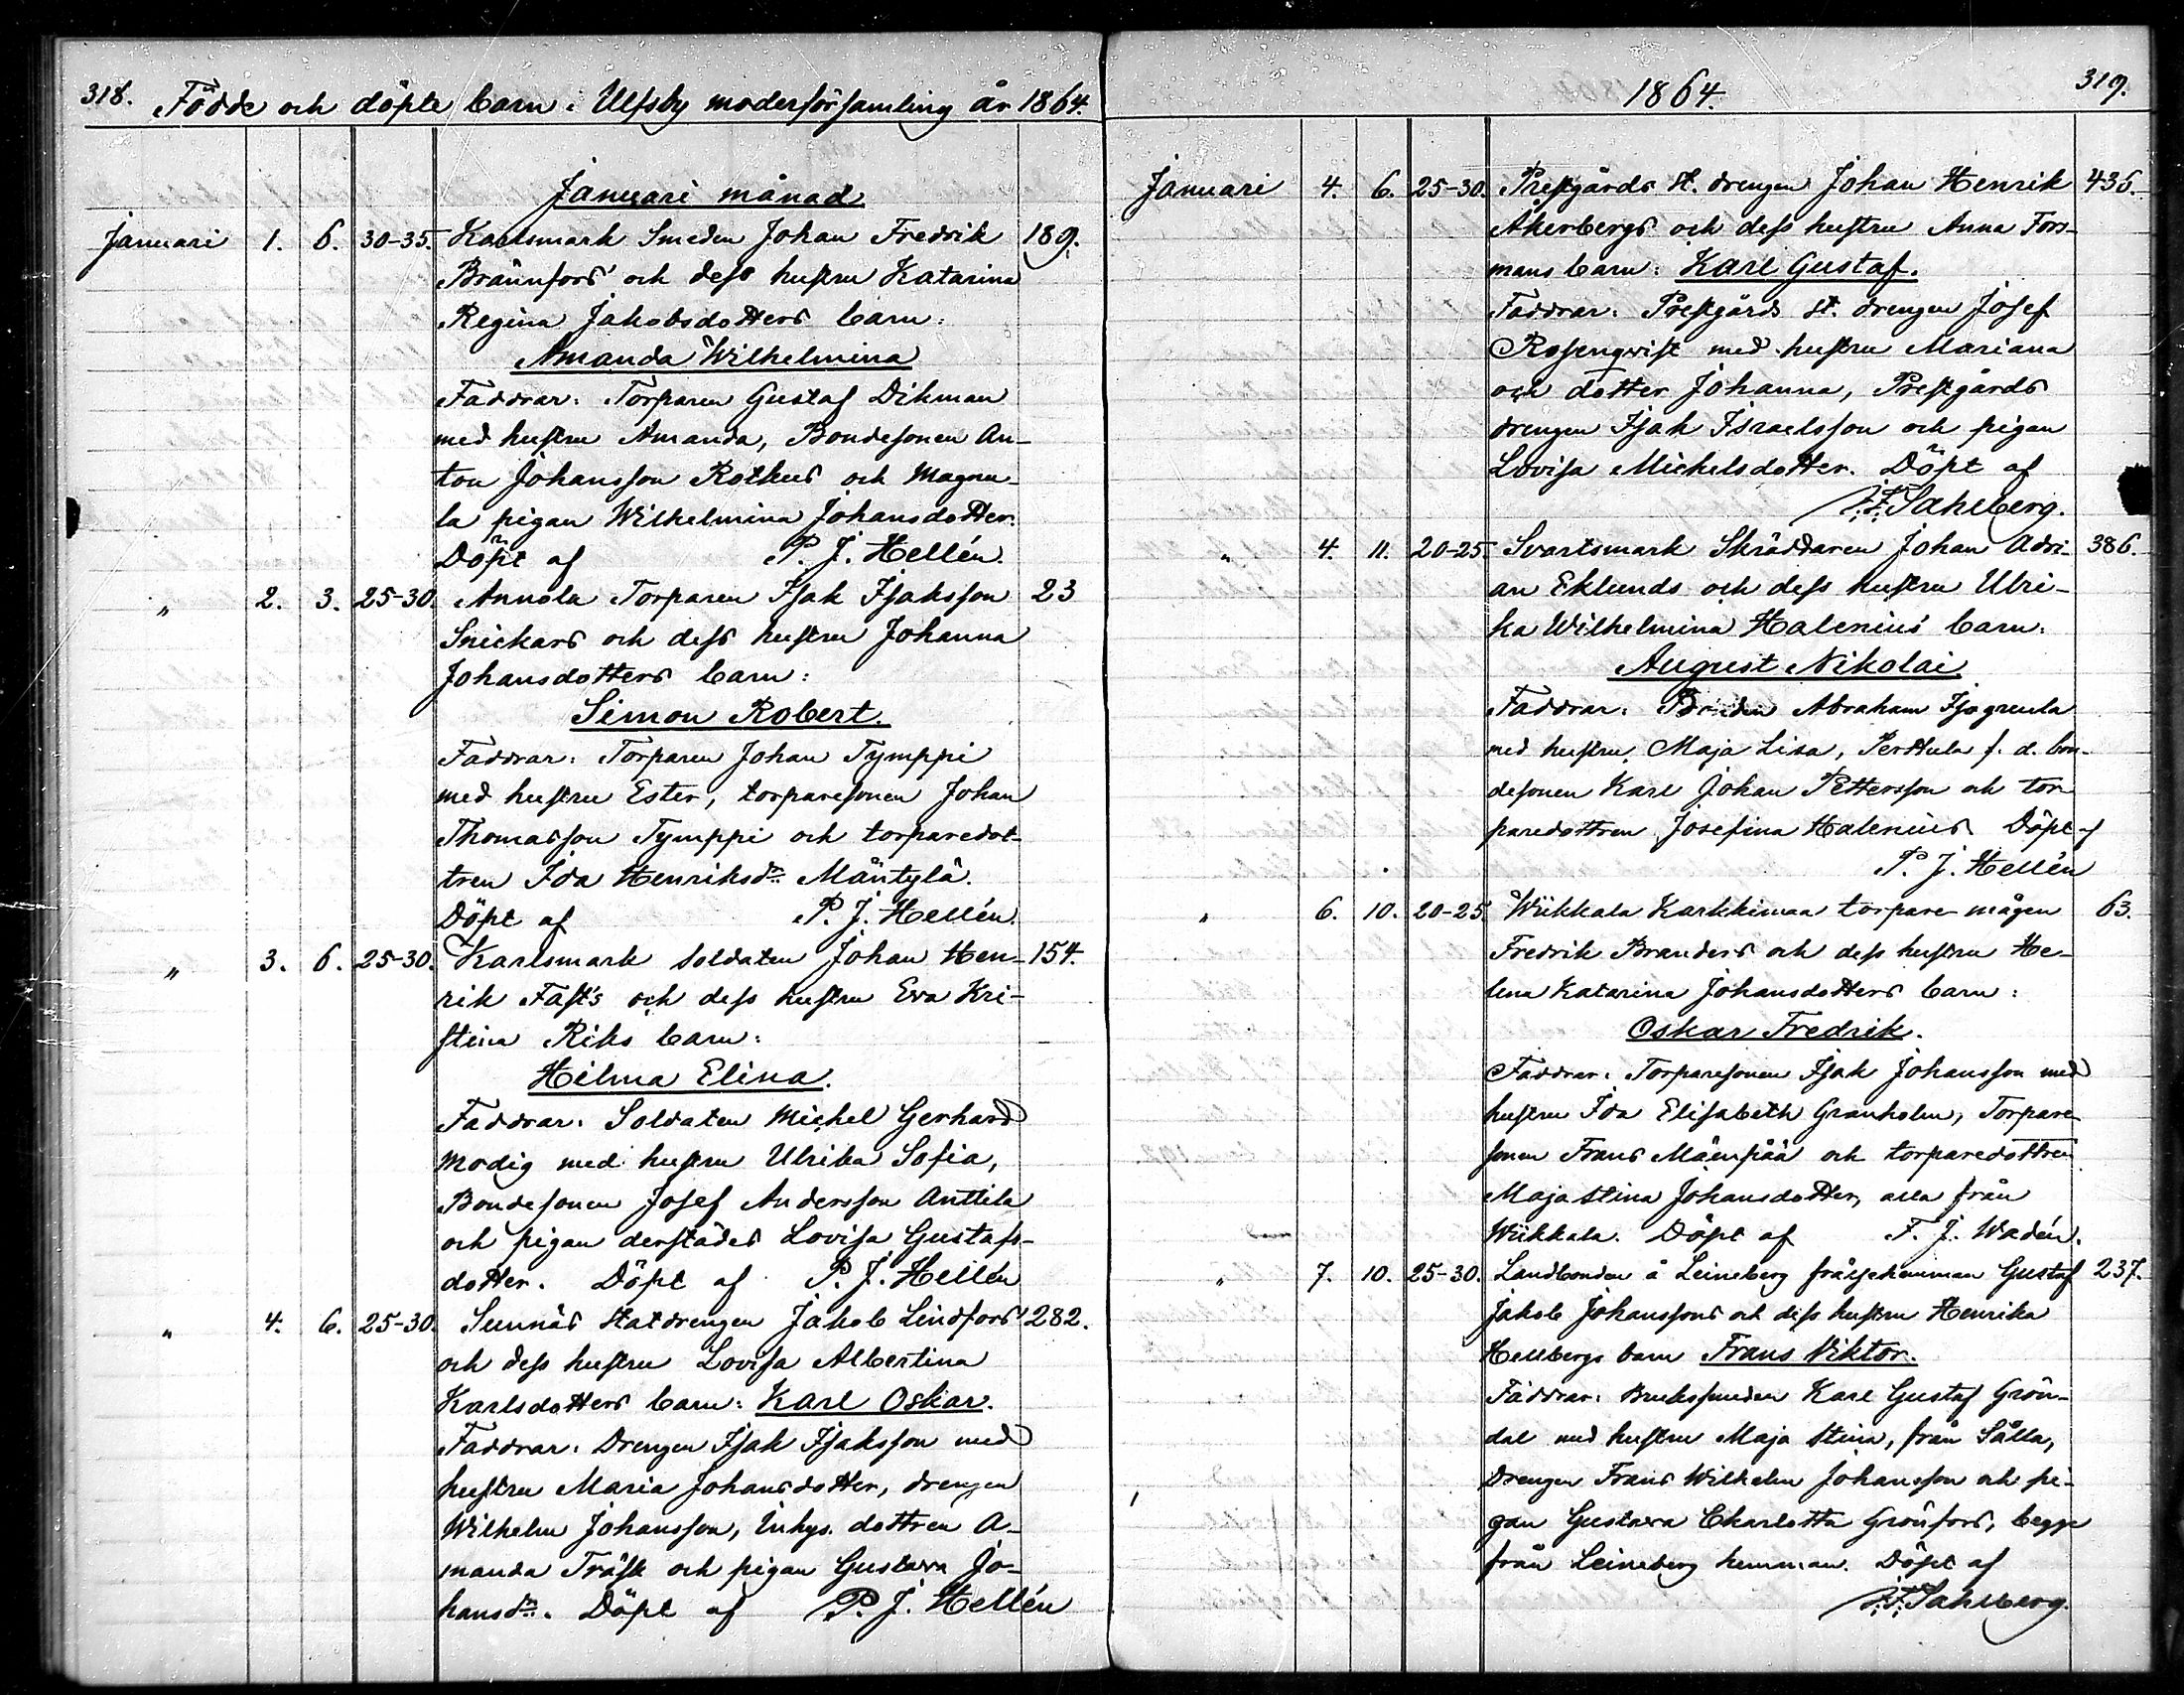 318. Födde och döpte barn i Ulfsby moderförsamling år 1864.
Januari månad
Januari 1. 6. 30-35. Karlsmark Smeden Johan Fredrik 189.
Brännfors' och dess hustru Katarina
Regina Jakobsdotters barn:
Amanda Wilhelmina
Faddrar: Torparen Gustaf Dikman
med hustru Amanda, Bondesonen An-
ton Johansson Rothus och Magnu-
la pigan Wilhelmina Johansdotter.
Döpt af P. J. Hellén.
" 2. 3. 25-30. Annola Torparen Isak Isaksson 23
Snickars och dess hustru Johanna
Johansdotters barn:
Simon Robert.
Faddrar: Torparen Johan Tymppi
med hustru Ester, torparesonen Johan
Thomasson Tymppi och torparedot-
tren Ida Henriksdr Mäntylä.
Döpt af P. J. Hellén.
" 3. 6. 25-30. Karlsmark soldaten Johan Hen- 154.
rik Fast's och dess hustru Eva Kri-
stina Riks barn:
Hilma Elina.
Faddrar: Soldaten Michel Gerhard
Modig med hustru Ulrika Sofia,
Bondesonen Josef Andersson Anttila
och pigan derstädes Lovisa Gustafs-
dotter. Döpt af P. J. Hellén
" 4. 6. 25-30. Sunnäs Statdrengen Jakob Lindfors' 282.
och dess hustru Lovisa Albertina
Karlsdotters barn: Karl Oskar.
Faddrar: Drengen Isak Isaksson med
hustru Maria Johansdotter, drengen
Wilhelm Johansson, Inhys. dottren A-
manda Träsk och pigan Gustava Jo-
hansdr. Döpt af P. J. Hellén
1864. 319.
Januari 4. 6. 25-30. Prestgårds st. drengen Johan Henrik 435.
Åkerbergs och dess hustru Anna Fors-
mans barn: Karl Gustaf.
Faddrar: Prestgårds st. drengen Josef
Rosenqvist med hustru Mariana
och dotter Johanna, Prestgårds
drengen Isak Israelsson och pigan
Lovisa Michelsdotter. Döpt af
Sahlberg.
" 4. 11. 20-25. Svartsmark Skräddaren Johan Adri- 386.
an Eklunds och dess hustru Ulri-
ka Wilhelmina Halenius' barn:
August Nikolai.
Faddrar: Bonden Abraham
med hustru Maja Lisa, Perttula f. d. bon-
desonen Karl Johan Pettersson och tor-
paredottren Josefina Halenius. Döpt af
P. J. Hellén
" 6. 10. 20-25. Wiikkala Karkkimaa torpare mågen 63.
Fredrik Branders och dess hustru He-
lena Katarina Johansdotters barn:
Oskar Fredrik.
Faddrar: Torparesonen Isak Johansson med
hustru Ida Elisabeth Granholm, Torpare
sonen Frans Mäenpää och torparedottren
Maja Stina Johansdotter, alla från
Wiikkala. Döpt af F. J. Wadén.
" 7. 10. 25-30. Landbonden å Leineberg frälsehemman Gustaf 237.
Jakob Johanssons och dess hustru Henrika
Hellbergs barn Frans Viktor.
Faddrar: Brukssmeden Karl Gustaf Grön-
dal med hustru Maja Stina, från Sålla,
Drengen Frans Wilhelm Johansson och pi-
gan Gustava Charlotta Grönfors, begge
från Leineberg hemman. Döpt af
Sahlberg.